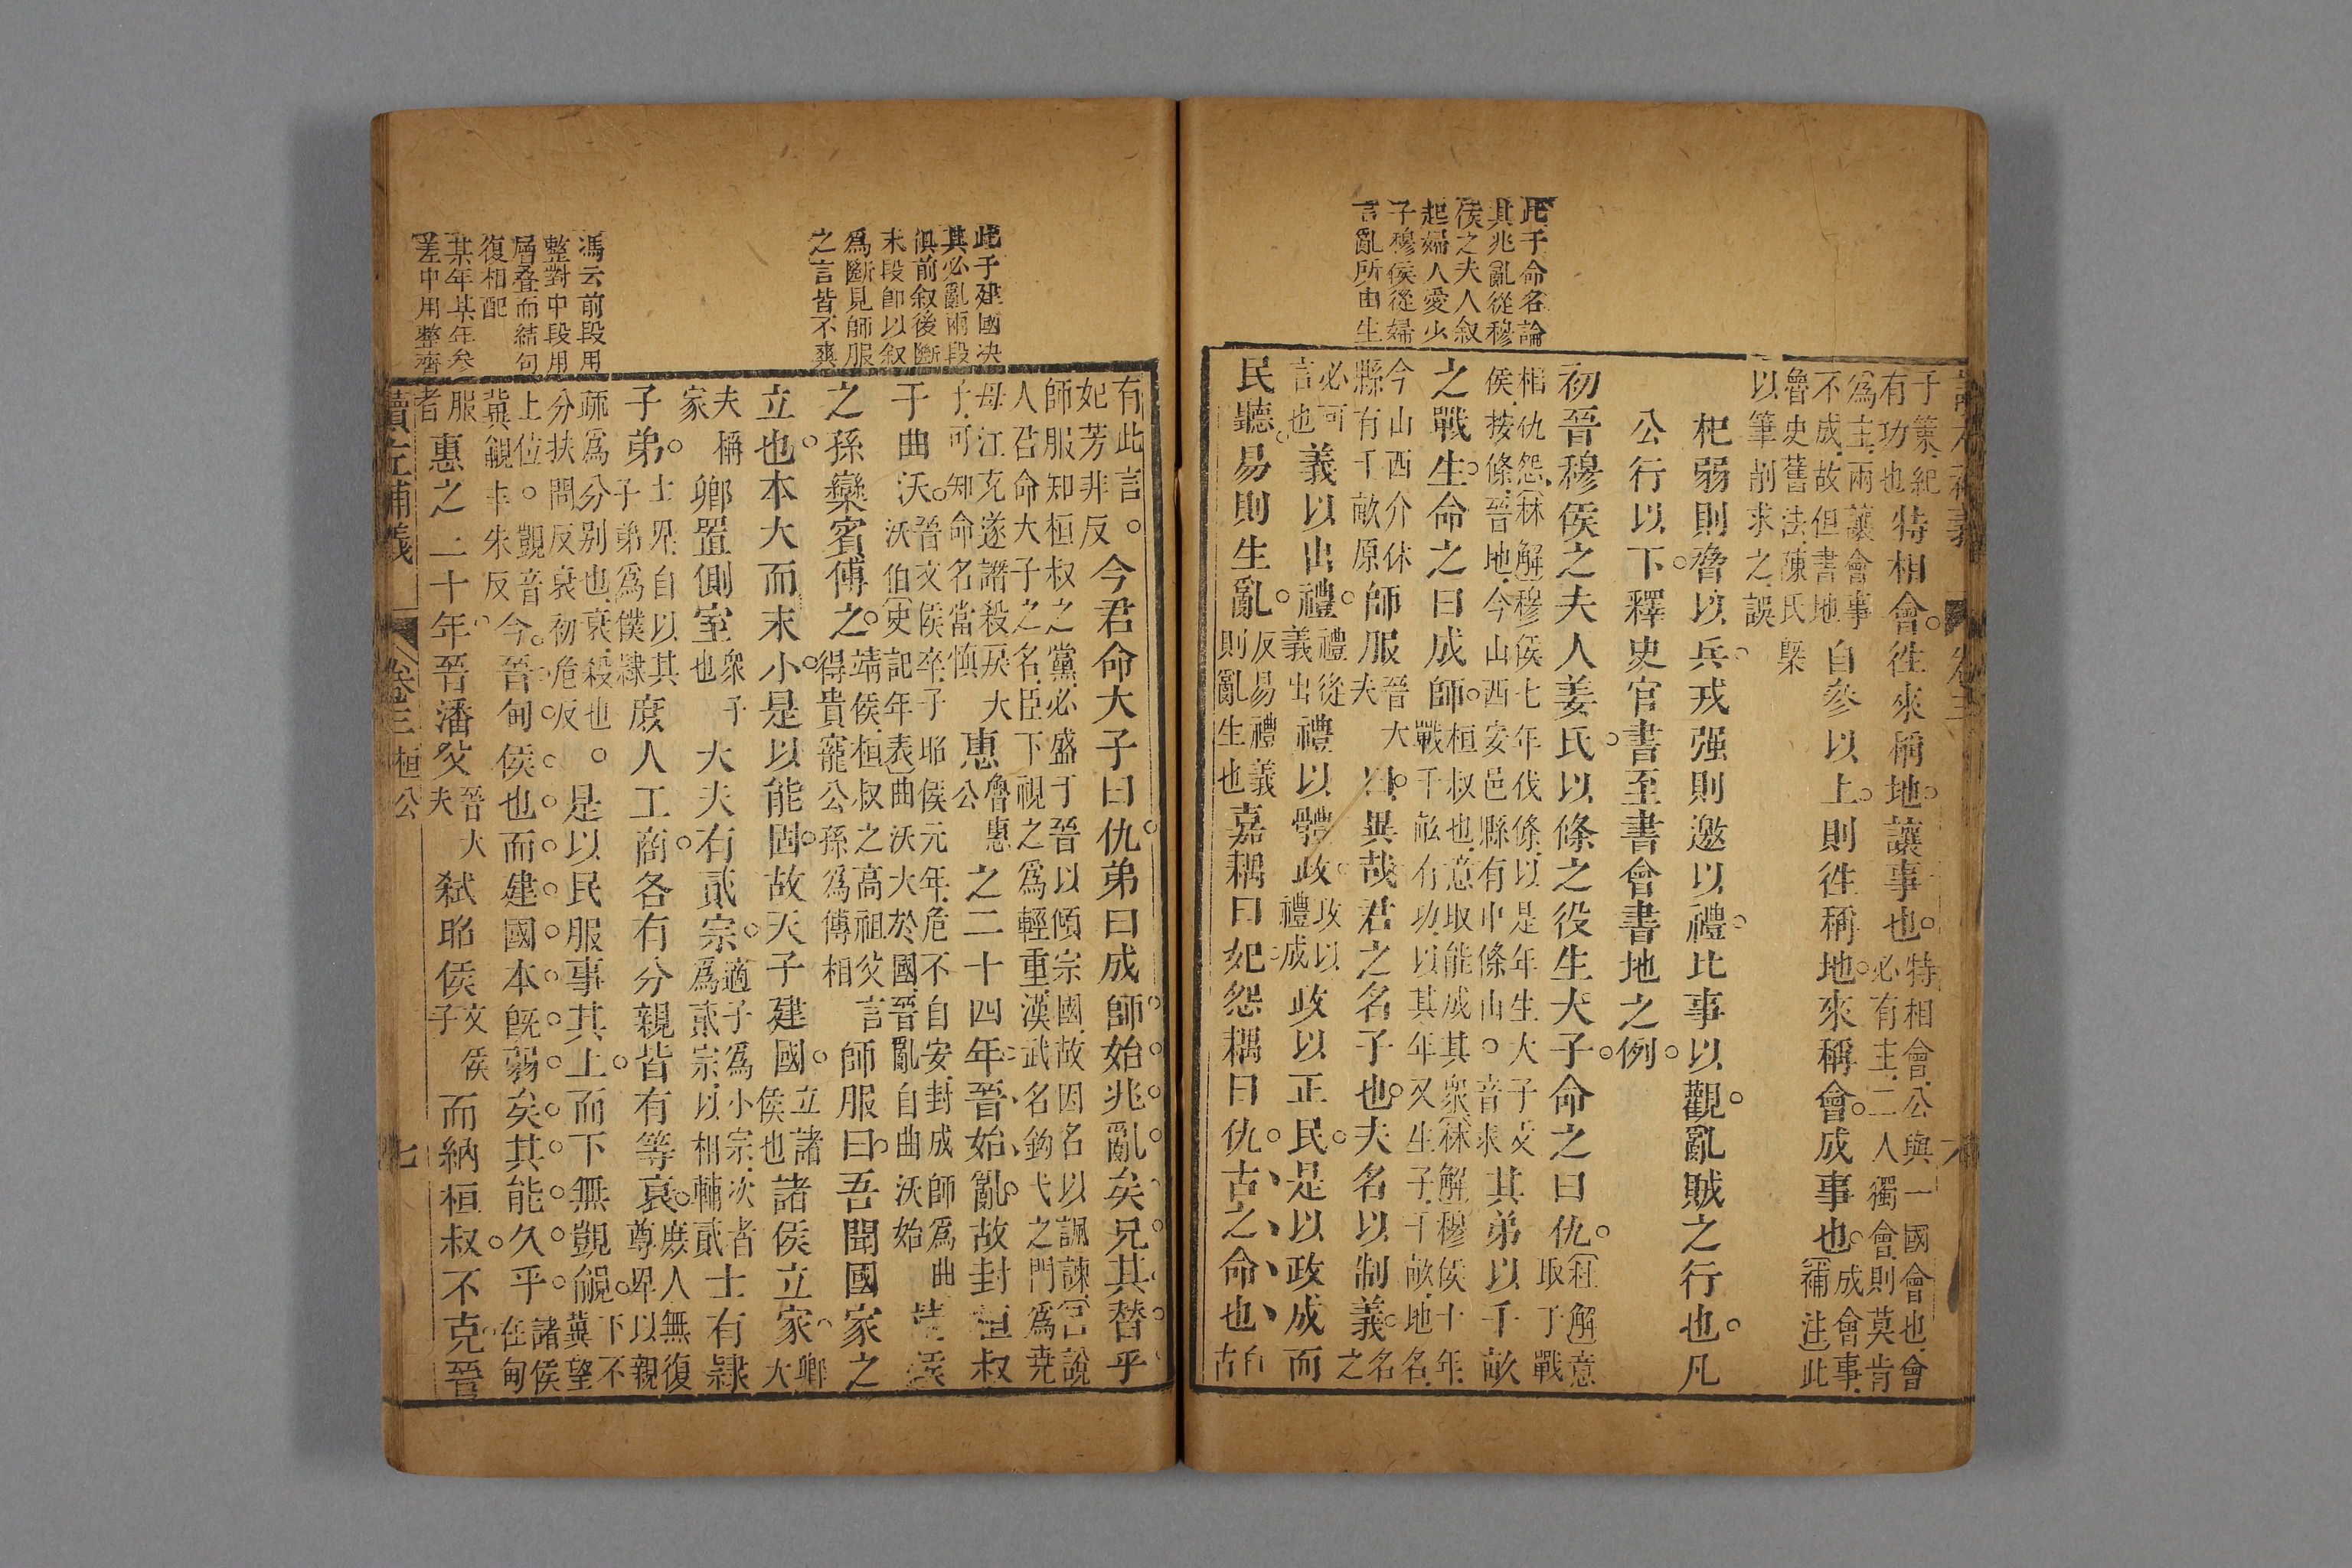 此于命名論
其兆亂從穆
侯之夫人叙
起婦人愛少
子穆侯從婦
言亂所由生
子策紀特相會往來稱地讓事也特相會公與一國會也會
有功也必有主二人獨會則莫肯
爲主兩讓會事自參以上則往稱地來稱會成事也成會事
不成故但書地補注此
魯史舊法陳氏槩
以筆削求之誤
杞弱則脅以兵戎强則邀以禮比事以觀亂賊之行也凡
公行以下釋史官書至書會書地之例
初晉穆侯之夫人姜氏以條之役生大子命之曰仇解意
取于戰
相仇怨林解穆侯七年伐條以是年生大子文其弟以千畝
侯按條晉地今山西安邑縣有中條山音泰
之戰生命之曰成師桓叔也意取能成其衆林解穆侯十年
戰千畝有功以其年又生子千畝地名
今山西介休師服晉大曰異哉君之名子也夫名以制義名
縣有千畝原夫之
必可義以出禮禮從禮以體政政以政以正民是以政成而
言也義出禮成
民聽易則生亂反易禮義嘉耦曰妃怨耦曰仇古之命也自
則亂生也古
此于建國決
其必亂兩段
俱前叙後斷
末段即以叙
爲斷見師服
之言皆不爽
馮云前段用
整對中段用
層叠而結句
復相配
某年某年叅
差中用整齊
有此言今君命大子曰仇弟曰成師始兆亂矣兄其替乎
妃芳非反
師服知桓叔之黨必盛于晉以傾宗國故因名以諷諫說
人召命大子之名臣下視之爲輕重漢武名鉤弋之門爲尭
母江充遂譖殺戾大惠魯惠之二十四年晉始亂故封桓叔
子可知命名當慎公
于曲沃晉文侯卒子昭侯元年危不自安封成師爲曲靖侯
沃伯史記年表曲沃大於國晉亂自曲沃始
之孫欒賓傅之靖侯桓叔之高祖父言師服曰吾聞國家之
得貴寵公孫爲傅相
立也本大而末小是以能固故天子建國立諸諸侯立家卿
侯也大
夫稱卿置側室衆子大夫有貳宗適子爲小宗次者士有隸
家也爲貳宗以相輔貳
子弟士卑自以其庶人工商各有分親皆有等衰庶人無復
子弟爲僕隸尊卑以親
疏爲分别也衰殺也是以民服事其上而下無覬覦下不
分扶問反衰初危反冀望
上位覬音今晉甸侯也而建國本既弱矣其能久乎諸侯
冀覦羊朱反在甸
服惠之三十年晉潘父晉大弑昭侯文侯而納桓叔不克晉
者夫子
讀左補義
卷三
桓公
七